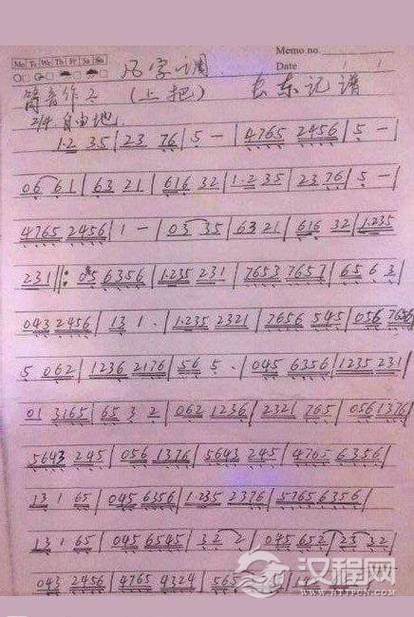 Memo no.
Mo Tu We Th Fr Sa Su
Date / /
凡字调
筒音作2 (上把) 长东记谱
2/4 自由地
1·2 35 | 23 76 | 5 - | 4765 2456 | 5 - |
06 61 | 63 21 | 616 32 | 1·2 35 | 23 76 | 5 - |
4765 2456 | 1 - | 03 35 | 63 21 | 616 32 | 1·235
231 ‖: 05 6356 | 1·235 231 | 7653 7657 | 65 6 3 |
043 2456 | 13 1 · | 1·235 2321 | 7656 545 | 056 7656
5 062 | 1236 2176 | 56 5 · | 045 6356 | 1235 231 |
01 3165 | 65 3 2 | 062 1236 | 2321 765 | 056 1376 |
5643 245 | 056 1376 | 5643 245 | 4765 6356 |
13 1 65 | 045 6356 | 1·235 2376 | 5765 6356 |
13 1 65 | 045 6545 | 32 2 | 045 652 | 23 32 |
043 2456 | 4765 4324 | 565
汉程网
WWW.HTTPCN.COM